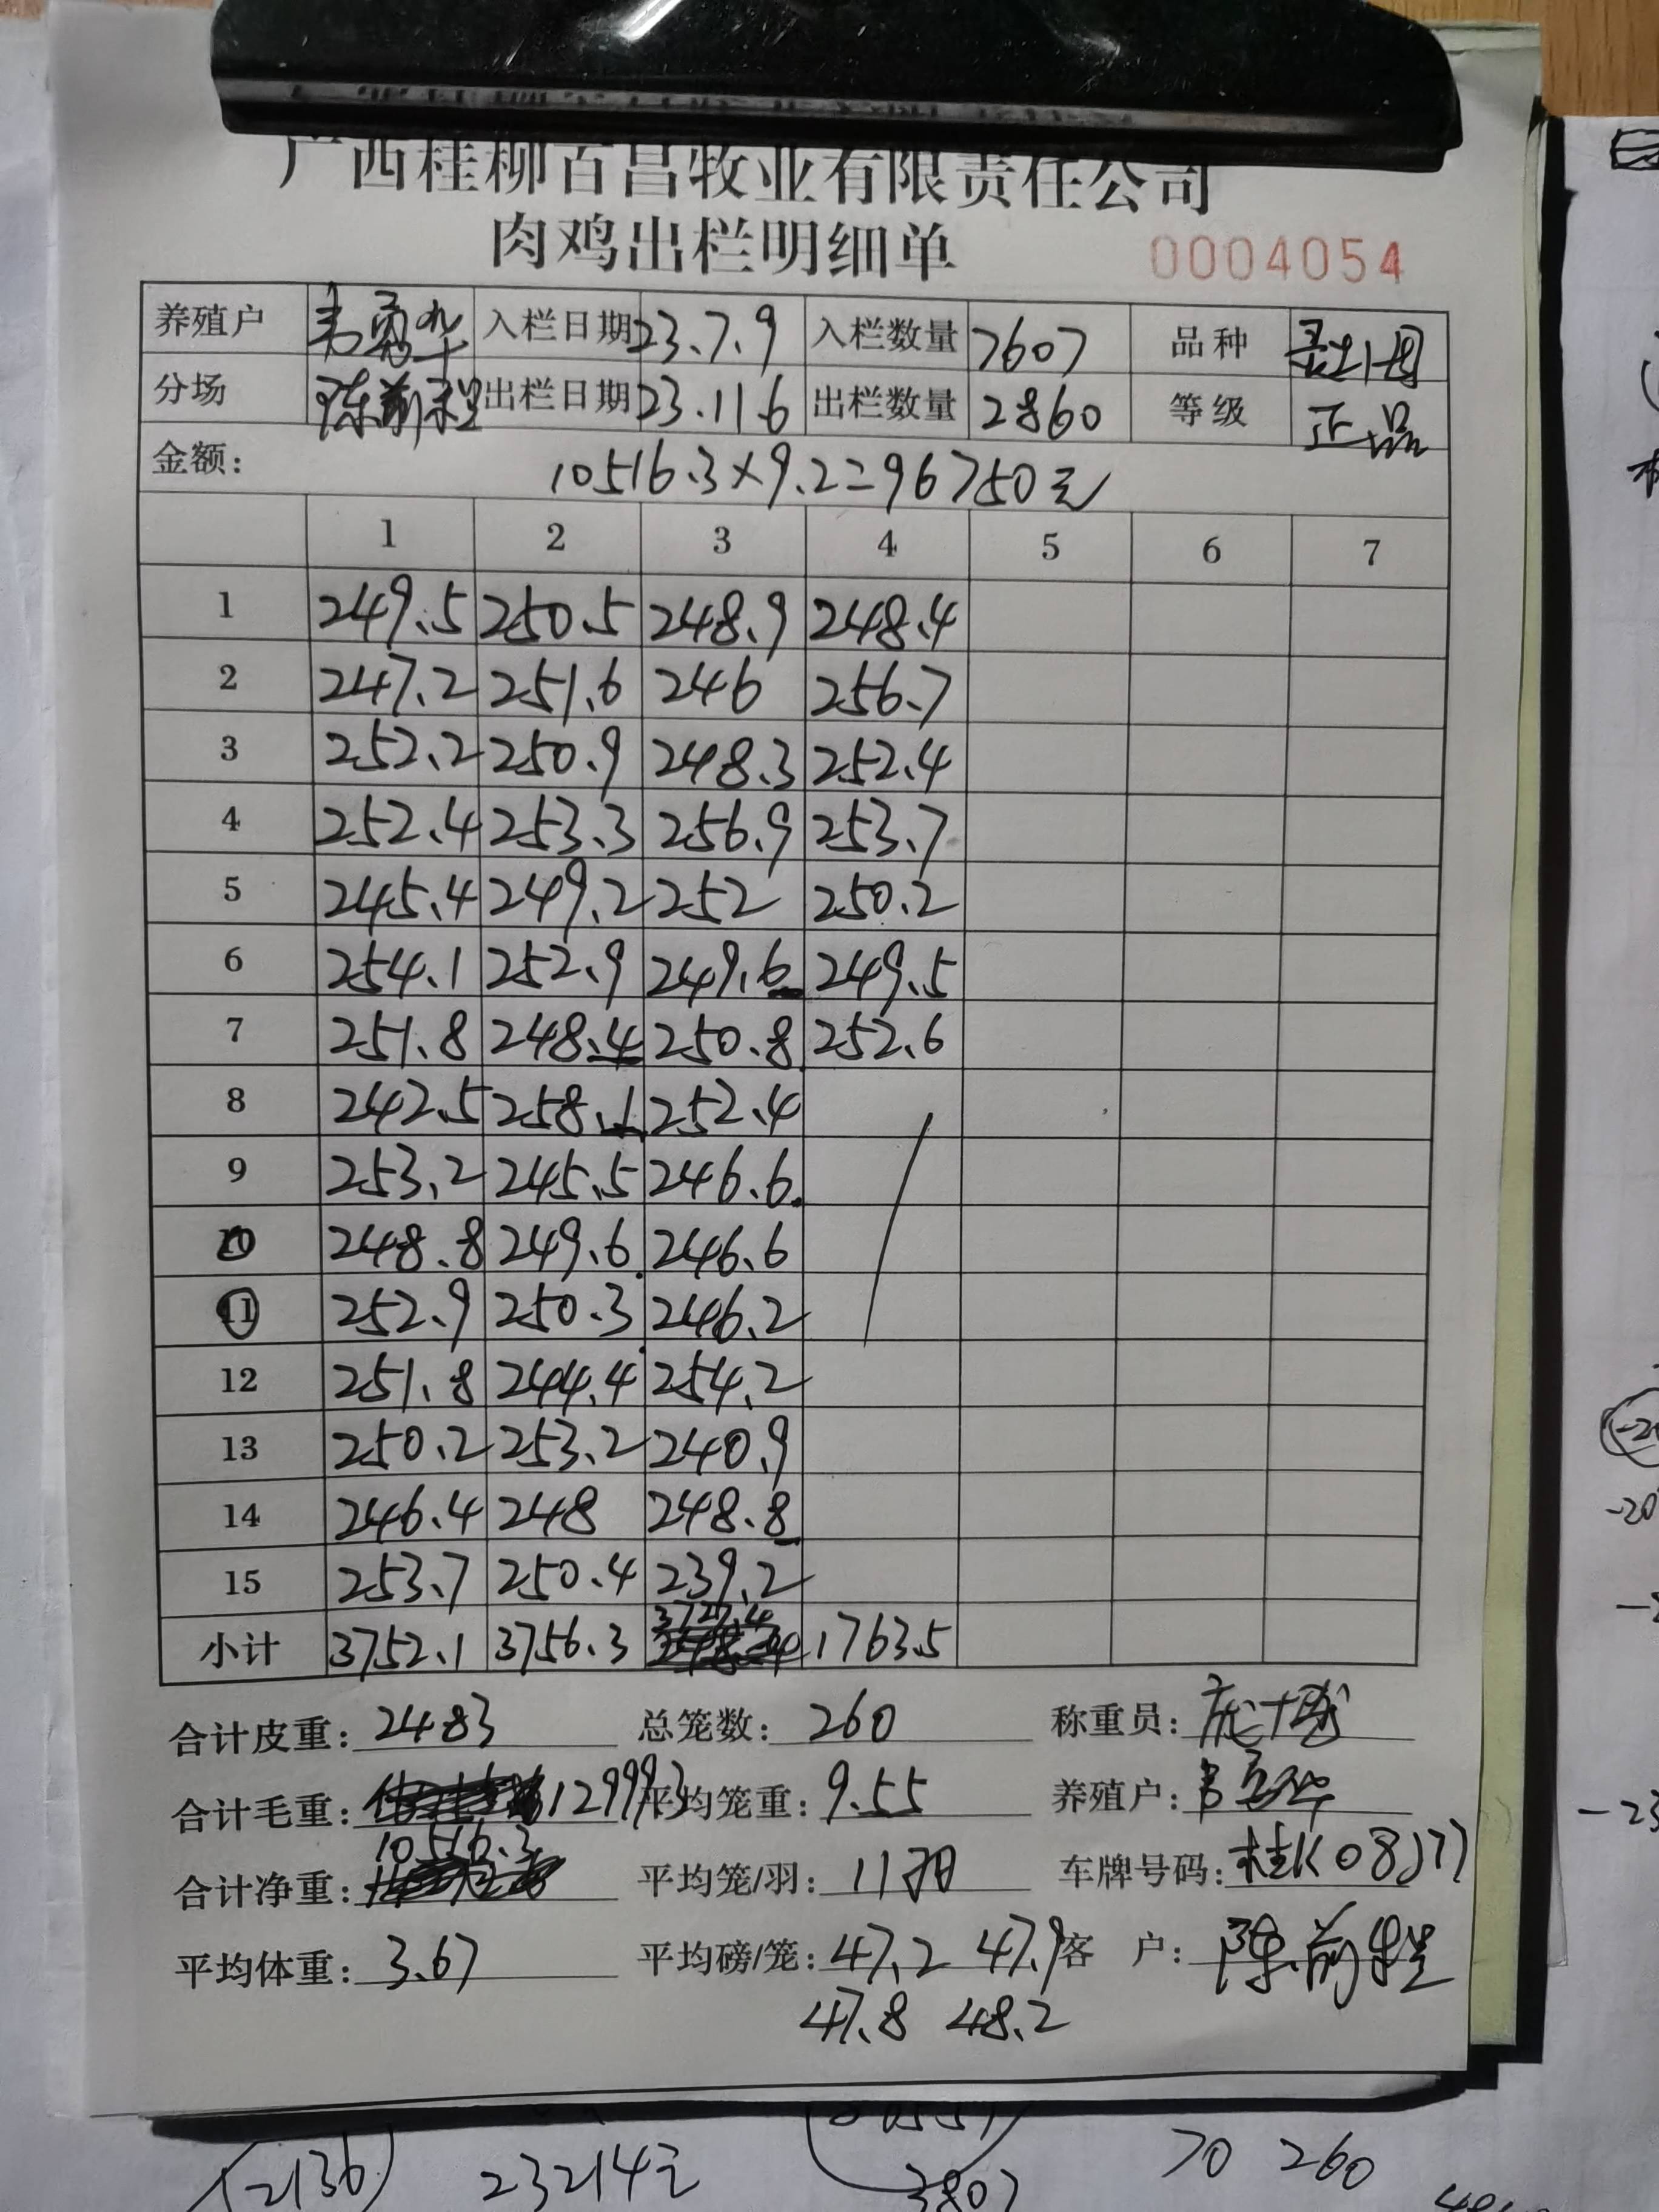 广西桂柳百昌牧业有限责任公司
肉鸡出栏明细单 0004054
养殖户 韦勇华 入栏日期 23.7.9 入栏数量 7607 品种
分场 陈前程 出栏日期 23.11.6 出栏数量 2860 等级 正品
金额: 10516.3×9.2=96750元
1 2 3 4 5 6 7
1 249.5 250.5 248.9 248.4
2 247.2 251.6 246 256.7
3 252.2 250.9 248.3 252.4
4 252.4 253.3 256.9 253.7
5 245.4 249.2 252 250.2
6 254.1 252.9 249.6 249.5
7 251.8 248.4 250.8 252.6
8 242.5 258.1 252.4
9 253.2 245.5 246.6
10 248.8 249.6 246.6
11 252.9 250.3 246.2
12 251.8 244.4 254.2
13 250.2 253.2 240.9
14 246.4 248 248.8
15 253.7 250.4 239.2
小计 3752.1 3756.3 3727.4 1763.5
合计皮重: 2483 总笼数: 260 称重员:
合计毛重: 12999.3 平均笼重: 9.55 养殖户: 韦勇华
合计净重: 10516.3 平均笼/羽: 11羽 车牌号码: 桂K08J77
平均体重: 3.67 平均磅/笼: 47.2 47.9 客 户: 陈前程
47.8 48.2
12136 23214元 3807 70 260